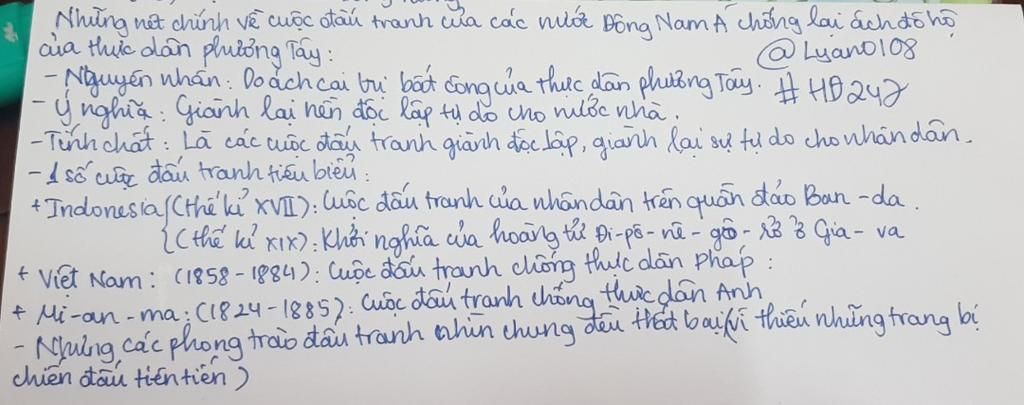 Những nét chính về cuộc đấu tranh của các nước Đông Nam Á chống lại ách đô hộ
của thực dân phương Tây:
@Lyan0108
- Nguyên nhân: Do ách cai trị bất công của thực dân phương Tây. #HĐ247
- Ý nghĩa: Giành lại nền độc lập tự do cho nước nhà.
- Tính chất: Là các cuộc đấu tranh giành độc lập, giành lại sự tự do cho nhân dân.
- 1 số cuộc đấu tranh tiêu biểu:
+ Indonesia {(thế kỉ XVII): Cuộc đấu tranh của nhân dân trên quần đảo Ban-da.
{(thế kỉ XIX): Khởi nghĩa của hoàng tử Đi-pô-nê-gô-rở ở Gia-va
+ Việt Nam: (1858-1884): Cuộc đấu tranh chống thực dân Pháp:
+ Mi-an-ma: (1824-1885): Cuộc đấu tranh chống thực dân Anh
- Nhưng các phong trào đấu tranh nhìn chung đều thất bại (vì thiếu những trang bị
chiến đấu tiên tiến)